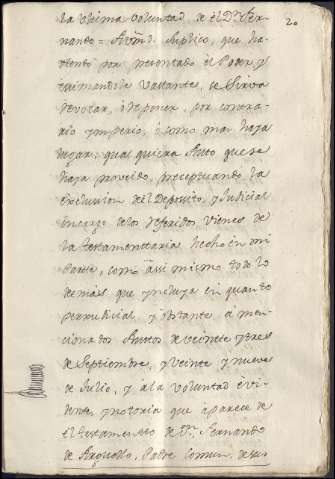 20
la ultima voluntad de el Dr. Fer-
nando = A Vmd. suplico, que ha-
viendo por presentado el Poder, y
teniendole bastante, se sirva
revocar, i deponer, por contra-
rio ymperio, o como mas haya
lugar, qual quiera Auto que se
haya proveido, preceptuando la
exclusion del Deposito, y Judicial
encargo de los referidos vienes de
la testamentaria hecho en mi
Parte, como assi mismo todo lo
demas que yncluya en quanto
perjudicial, y obstante a men-
cionados Autos de veinte y tres
de Septiembre, y veinte y nueve
de Julio, y a la voluntad evi-
dente, y notoria que aparece de
el testamento de Dn. Fernando
de Arguello, Padre comun, de sus